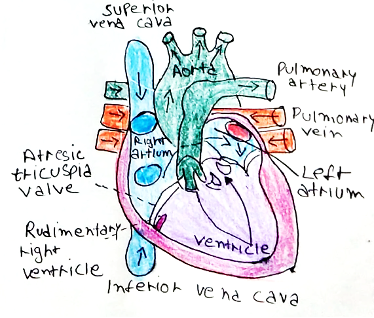 Superior
vena cava
Aorta
Pulmonary
artery
Pulmonary
vein
Right
artium
Atresic
thicuspia
valve
Left
atrium
Rudimentary
right
ventricle
ventricle
Inferior vena cava